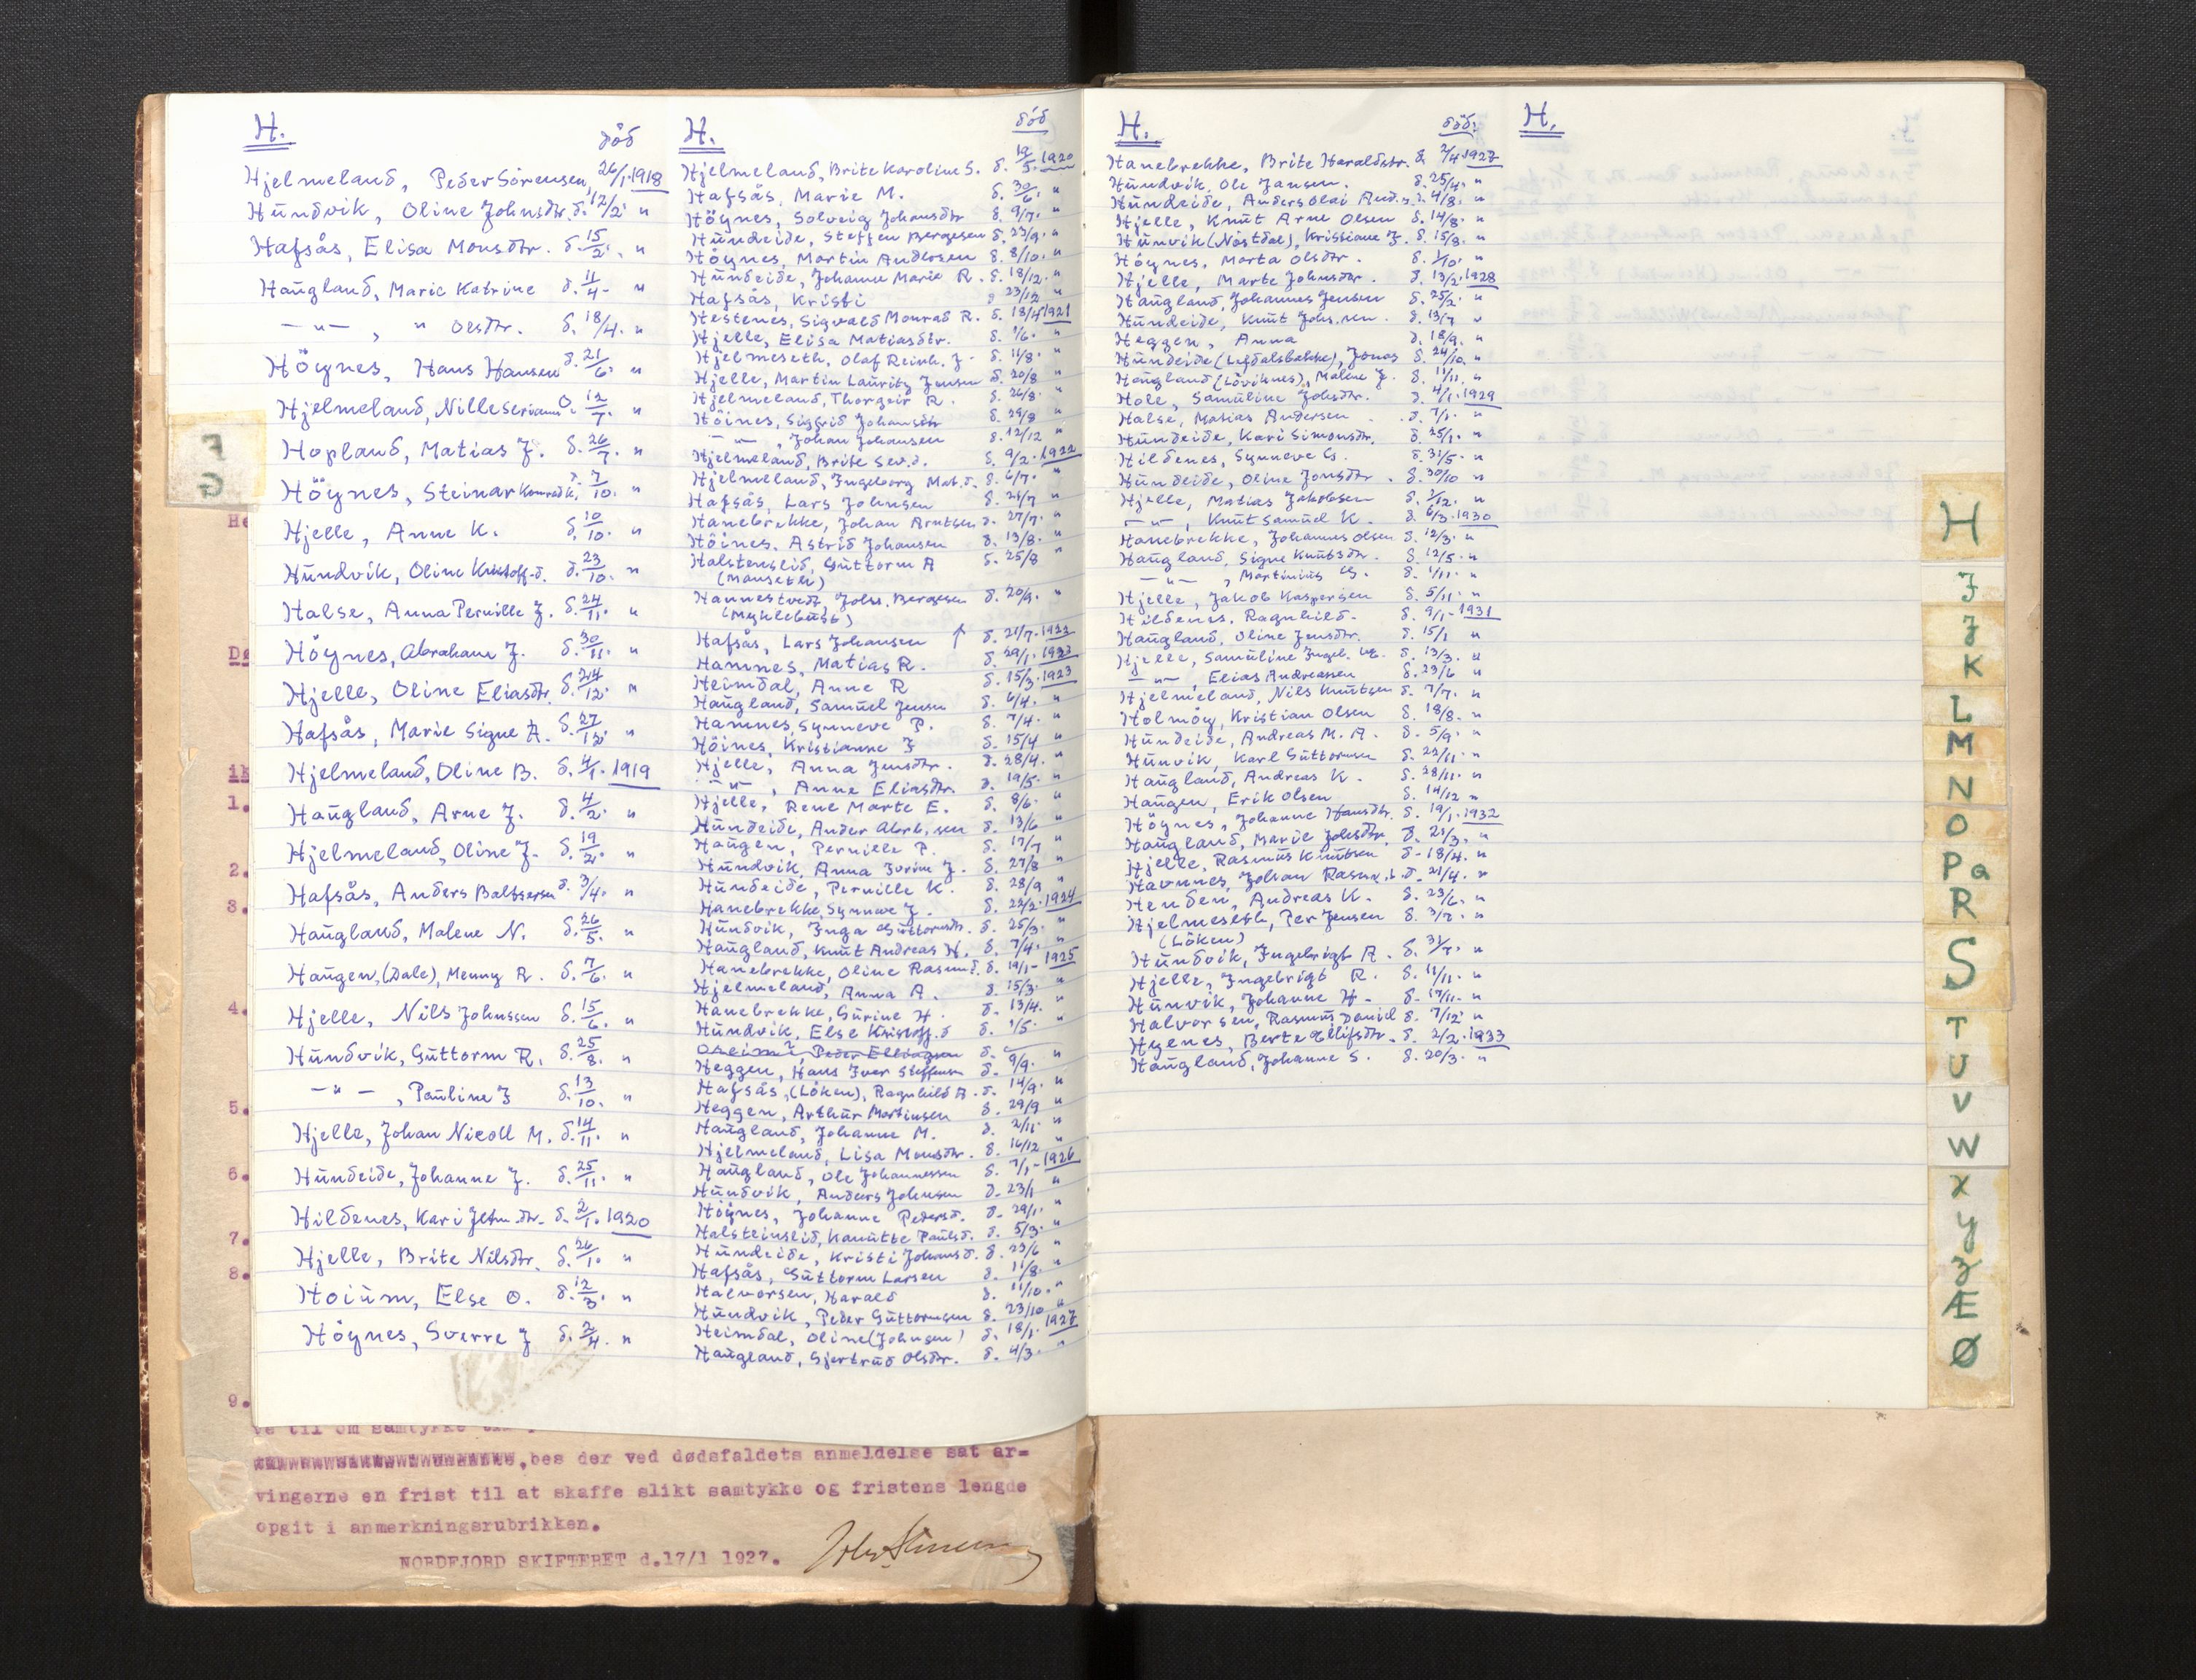 H. død
Hjelmeland, Peder Sörensen, 26/1. 1918
Hundvik, Oline Johnsdtr. d. 12/2. "
Hafsås, Elisa Monsdtr. d. 15/2. "
Haugland, Marie Katrine d. 11/4. "
—"— , " Olsdtr. d. 18/4. "
Höynes, Hans Hansen d. 21/6. "
Hjelmeland, Nille d. 12/7. "
Hopland, Matias J. d. 26/7. "
Höynes, Steinar Konrad K. d. 7/10. "
Hjelle, Anne K. d. 10/10. "
Hundvik, Oline Kristoff.d. d. 23/10. "
Halse, Anna Pernille J. d. 24/11. "
Höynes, Abraham J. d. 30/11. "
Hjelle, Oline Eliasdtr. d. 24/12. "
Hafsås, Marie Signe A. d. 27/12. "
Hjelmeland, Oline B. d. 4/1. 1919
Haugland, Arne J. d. 4/2. "
Hjelmeland, Oline J. d. 19/2. "
Hafsås, Anders Baltsersen d. 3/4. "
Haugland, Malene N. d. 26/5. "
Haugen, (Dale), Menny R. d. 7/6. "
Hjelle, Nils Johnssen d. 15/6. "
Hundvik, Guttorm R. d. 25/8. "
—"— , Pauline J d. 13/10. "
Hjelle, Johan Nicoll M. d. 14/11. "
Hundeide, Johanne J. d. 25/11. "
Hildenes, Kari d. 2/1. 1920
Hjelle, Brite Nilsdtr. d. 26/1. "
Hoium, Else O. d. 12/3. "
Höynes, Sverre J d. 2/4. "
H. död
Hjelmeland, Brite Karoline S. d. 19/5. 1920
Hafsås, Marie M. d. 30/6. "
Höynes, Solveig Johansdtr d. 9/7. "
Hundeide, Steffen Bergesen d. 23/9. "
Höynes, Martin Andersen d. 8/10. "
Hundeide, Johanne Marie R. d. 18/12. "
Hafsås, Kristi d 23/12 "
Hestenes, Sigvald Monrad R. d. 18/4 1921
Hjelle, Elisa Matiasdtr. d. 1/6. "
Hjelmeseth, Olaf Reinh. J. d. 11/8. "
Hjelle, Martin Lauritz Jensen d. 20/8 "
Hjelmeland, Thorgeir R. d. 26/8. "
Höines, Sigfrid Johansdtr d. 29/8 "
—"— , Johan Johansen d. 12/12 "
Hjelmeland, Brite Sev.d. d. 9/2. 1922
Hjelmeland, Ingeborg Mat.d. d. 6/7. "
Hafsås, Lars Johnsen d. 21/7 "
Hanebrekke, Johan Arntsen d. 27/7. "
Höines, Astrid Johansen d. 13/8. "
Halstenslid, Guttorm A d. 25/8 "
(Mauseth)
Hannestvedt, Johs. Bergesen d. 20/9. "
(Myklebust)
Hafsås, Lars Johansen ↑ d. 21/7. 1922
Hamnes, Matias R. d. 29/1. 1923
Heimdal, Anne R d. 15/3. 1923
Haugland, Samuel Jensen d. 6/4. "
Hamnes, Synneve P. d. 7/4. "
Höines, Kristianne J d. 15/4 "
Hjelle, Anna Jensdtr. d. 28/4. "
—"— , Anne Eliasdtr. d. 19/5. "
Hjelle, Rene Marte E. d. 8/6. "
Hundeide, Ander Abrh.sen d. 13/6 "
Haugen, Pernille P. d. 17/7 "
Hundvik, Anna Jorine J. d. 27/8 "
Hundeide, Pernille K. d. 28/9 "
Hanebrekke, Synneve J. d. 22/2. 1924
Hundvik, Inga Guttormsdtr. d. 25/3. "
Haugland, Knut Andreas H. d. 7/4. "
Hanebrekke, Oline Rasm.d. d. 19/1- 1925
Hjelmeland, Anna A. d. 15/3. "
Hanebrekke, Gurine H. d. 13/4. "
Hundvik, Else Kristoff.d d. 1/5. "
Peder Ellingsen d.
Heggen, Hans Iver Steffensen d. 9/9. "
Hafsås, (Löken), Ragnhild A. d. 14/9. "
Heggen, Arthur Martinsen d. 29/9 "
Haugland, Johanne M. d. 2/11. "
Hjelmeland, Lisa Monsdtr. d. 16/12 "
Haugland, Ole Johannessen d. 7/1- 1926
Hundvik, Anders Johnsen d. 23/1 "
Höynes, Johanne Pedersd. d. 29/1. "
Halsteinslid, Kanutte Paulsd. d. 5/3. "
Hundeide, Kristi Johansd. d. 23/6 "
Hafsås, Guttorm Larsen d. 11/8. "
Halvorsen, Harald d. 11/10. "
Hundvik, Peder Guttormsen d. 23/10 "
Heimdal, Oline (Johnsen) d. 18/1. 1927
Haugland, Gjertrud Olsdtr. d. 4/3. "
H. död.
Hanebrekke, Brite Haraldstr. d. 2/4. 1927
Hundvik, Ole Jansen. d. 25/4. "
Hundeide, Anders Olai And.s. d. 4/8. "
Hjelle, Knut Arne Olsen d. 14/8. "
Hunvik (Nöstdal), Kristiane J. d. 15/8. "
Höynes, Marta Olsdtr. d. 1/10. "
Hjelle, Marte Johnsdtr. d. 13/2. 1928
Haugland, Johannes Jensen d. 25/2. "
Hundeide, Knut Johs.sen. d. 13/7 "
Heggen, Anna d. 18/9. "
Hundeide (Lefdalsbakke), Jonas d. 24/10. "
Haugland (Löviknes), Malene J. d. 11/11. "
Hole, Samuline Johsdtr. d. 4/1. 1929
Halse, Matias Andersen d. 7/1. "
Hundeide, Kari Simonsdtr. d. 25/1. "
Hildenes, Synneve G. d. 31/5 "
Hundeide, Oline Jonsdtr. d. 30/10 "
Hjelle, Matias Jakobsen d. 2/12. "
—"— , Knut Samuel K. d. 6/3. 1930
Hanebrekke, Johannes Olsen d. 12/3. "
Haugland, Signe Knutsdtr. d. 12/5. "
—"— , Martinius G. d. 1/11. "
Hjelle, Jakob Kaspersen d. 5/11. "
Hildenes, Ragnhild. d. 9/1- 1931
Haugland, Oline Jensdtr. d. 15/1 "
Hjelle, Samuline Ingel. d. 13/3. "
—"— Elias Andreassen d. 23/6 "
Hjelmeland, Nils Knutsen d. 7/7. "
Holmöy, Kristian Olsen d. 18/8. "
Hundeide, Andreas M. A. d. 5/9. "
Hunvik, Karl Guttormsen d. 22/11. "
Haugland, Andreas K. d. 28/11. "
Haugen, Erik Olsen d. 14/12 "
Höynes, Johanne Hansdtr. d. 19/1. 1932
Haugland, Marie Johsdtr. d. 21/3. "
Hjelle, Rasmus Knutsen d. 18/4. "
Havnnes, Johan d. 21/4. "
Henden, Andreas K. d. 23/6. "
Hjelmeseth, Per Jensen d. 3/7. "
(Löken)
Hundvik, Ingebrigt A. d. 31/7. "
Hjelle, Ingebrigt R. d. 11/11. "
Hunvik, Johanne H. d. 17/11. "
Halvorsen, Rasmus Daniel d. 7/12 "
Hyenes, Berte Ellifsdtr. d. 2/2. 1933
Haugland, Johanne S. d. 20/3. "
H.
H
I
J
K
L
M
N
O
P Q
R
S
T
U
V
W
X
Y
Z
Æ
Ø
1.
2.
3.
4.
5.
6.
7.
8.
9.
bes der ved dødsfaldets anmeldelse sat ar=
vingerne en frist til at skaffe slikt samtykke og fristens lengde
opgit i anmerkningsrubrikken.
NORDFJORD SKIFTERET d.17/1 1927.